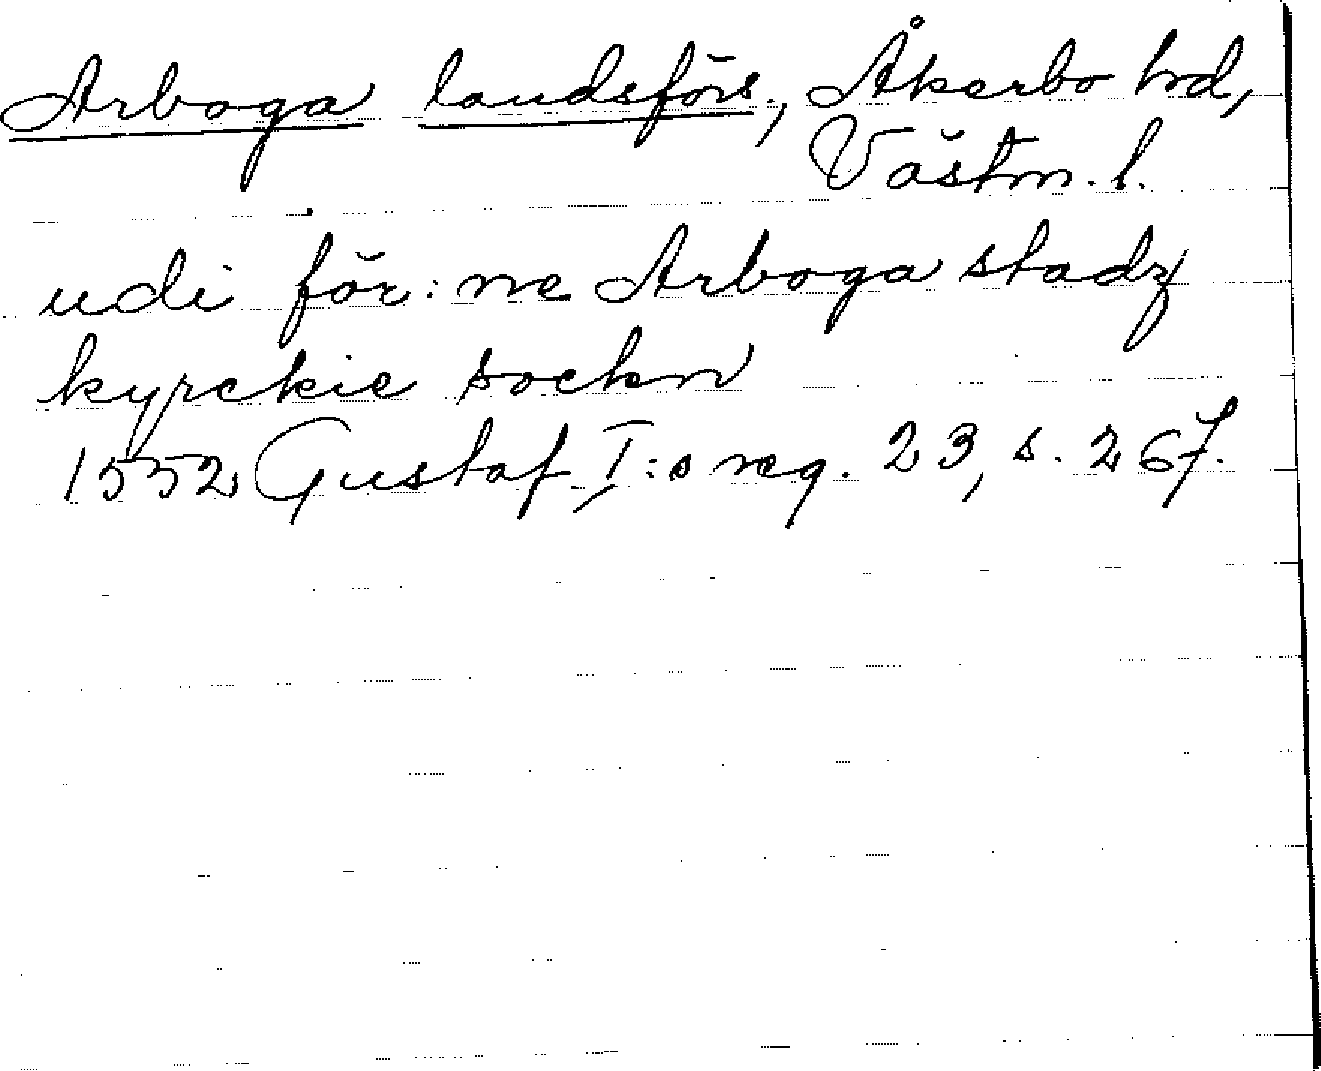 Arboga landsförs., Åkerbo hd,
Västm. l.
udi för:ne Arboga stadz
kyrckie sockn
1552 Gustaf I:s reg. 23, s. 267.